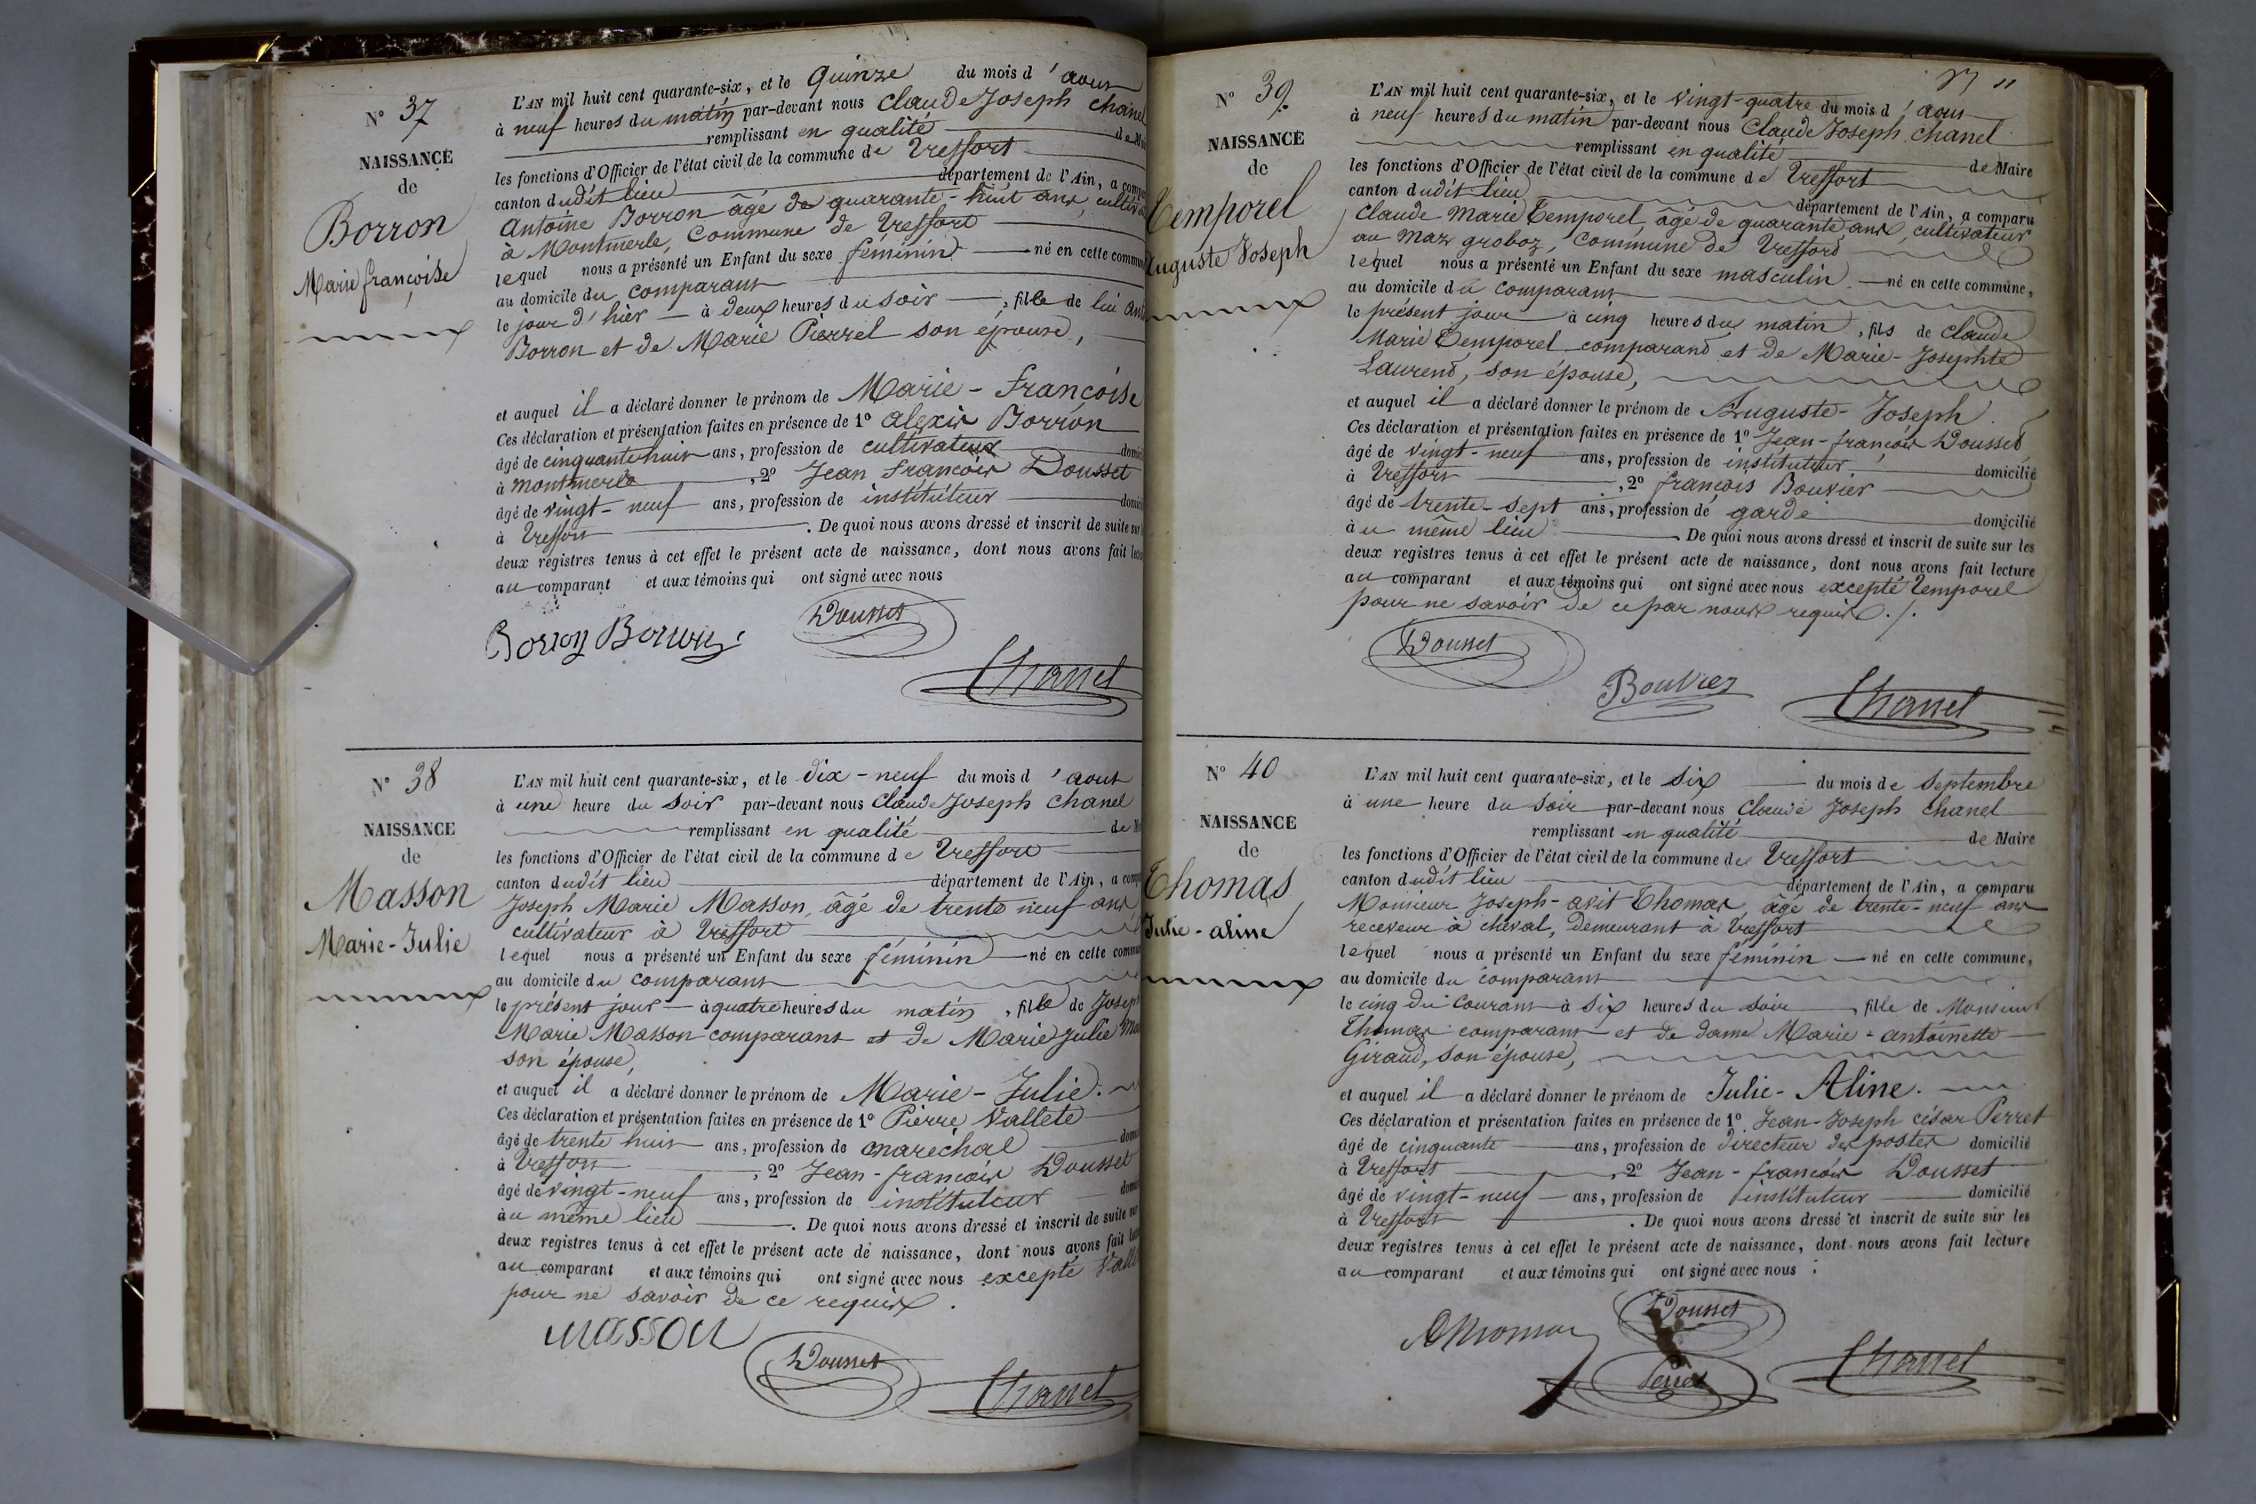 N° 37
NAISSANCE
de
Borron
Marie françoise
L'AN mil huit cent quarante-six, et le Quinze du mois d'aout
à neuf heures du matin par-devant nous Claude Joseph Chanel
remplissant en qualité de
les fonctions d'Officier de l'état civil de la commune de Treffort
canton dudit lieu département de l'Ain, a
Antoine Borron âgé de quarante-huit ans,
à Montmerle, Commune de Treffort
lequel nous a présenté un Enfant du sexe féminin né en cette
au domicile du comparant
le jour d'hier à deux heures du soir, fille de lui
Borron et de Marie Pierrel son épouse,
et auquel il a déclaré donner le prénom de Marie-françoise
Ces déclaration et présentation faites en présence de 1° alexis Borron
âgé de cinquante huit ans, profession de cultivateur
à montmerle, 2° Jean françois Dousset
âgé de vingt-neuf ans, profession de instituteur
à Treffort. De quoi nous avons dressé et inscrit de suite sur
deux registres tenus à cet effet le présent acte de naissance, dont nous avons fait
au comparant et aux témoins qui ont signé avec nous
Borron Borron Dousset
Chanel
N° 38
NAISSANCE
de
Masson
Marie-Julie
L'AN mil huit cent quarante-six, et le dix-neuf du mois d'aout
à une heure du soir par-devant nous Claude Joseph Chanel
remplissant en qualité de
les fonctions d'Officier de l'état civil de la commune de Treffort
canton dudit lieu département de l'Ain, a
Joseph Marie Masson, âgé de trente neuf ans,
cultivateur à Treffort
lequel nous a présenté un Enfant du sexe féminin né en cette
au domicile du comparant
le présent jour à quatre heures du matin, fille de Joseph
Marie Masson comparant et de Marie Julie
son épouse,
et auquel il a déclaré donner le prénom de Marie-Julie.
Ces déclaration et présentation faites en présence de 1° Pierre Vallete
âgé de trente huit ans, profession de maréchal
à Treffort, 2° Jean-françois Dousset
âgé de vingt-neuf ans, profession de instituteur
au même lieu. De quoi nous avons dressé et inscrit de suite sur
deux registres tenus à cet effet le présent acte de naissance, dont nous avons fait
au comparant et aux témoins qui ont signé avec nous excepté
pour ne savoir de ce requis.
masson
Dousset
Chanel
11
N° 39
NAISSANCE
de
Temporel
Auguste Joseph
L'AN mil huit cent quarante-six, et le vingt-quatre du mois d'aout
à neuf heures du matin par-devant nous Claude Joseph Chanel
remplissant en qualité de Maire
les fonctions d'Officier de l'état civil de la commune de Treffort
canton dudit lieu département de l'Ain, a comparu
Claude Marie Temporel âgé de quarante ans, cultivateur
au maz groboz, Commune de Treffort
lequel nous a présenté un Enfant du sexe masculin né en cette commune,
au domicile du comparant
le présent jour à cinq heures du matin, fils de Claude
Marie Temporel comparant et de Marie-Josephte
Laurent, son épouse,
et auquel il a déclaré donner le prénom de Auguste-Joseph.
Ces déclaration et présentation faites en présence de 1° Jean-françois Dousset
âgé de vingt-neuf ans, profession de instituteur domicilié
à Treffort, 2° françois Bouvier
âgé de trente-sept ans, profession de garde domicilié
au même lieu. De quoi nous avons dressé et inscrit de suite sur les
deux registres tenus à cet effet le présent acte de naissance, dont nous avons fait lecture
au comparant et aux témoins qui ont signé avec nous excepté Temporel
pour ne savoir de ce par nous requis./.
Dousset
Bouvier
Chanel
N° 40
NAISSANCE
de
Thomas
Julie-aline
L'AN mil huit cent quarante-six, et le six du mois de Septembre
à une heure du soir par-devant nous Claude Joseph Chanel
remplissant en qualité de Maire
les fonctions d'Officier de l'état civil de la commune de Treffort
canton dudit lieu département de l'Ain, a comparu
Monsieur Joseph-avit Thomas, âgé de trente-neuf ans
receveur à cheval, demeurant à Treffort
lequel nous a présenté un Enfant du sexe féminin né en cette commune,
au domicile du comparant
le cinq du courant à six heures du soir, fille de Monsieur
Thomas comparant et de dame Marie-antoinette
Giraud, son épouse,
et auquel il a déclaré donner le prénom de Julie-Aline.
Ces déclaration et présentation faites en présence de 1° Jean-Joseph césar Perret
âgé de cinquante ans, profession de directeur des postes domicilié
à Treffort, 2° Jean-françois Dousset
âgé de vingt-neuf ans, profession de instituteur domicilié
à Treffort. De quoi nous avons dressé et inscrit de suite sur les
deux registres tenus à cet effet le présent acte de naissance, dont nous avons fait lecture
au comparant et aux témoins qui ont signé avec nous.
Dousset
Thomas
Perret
Chanel